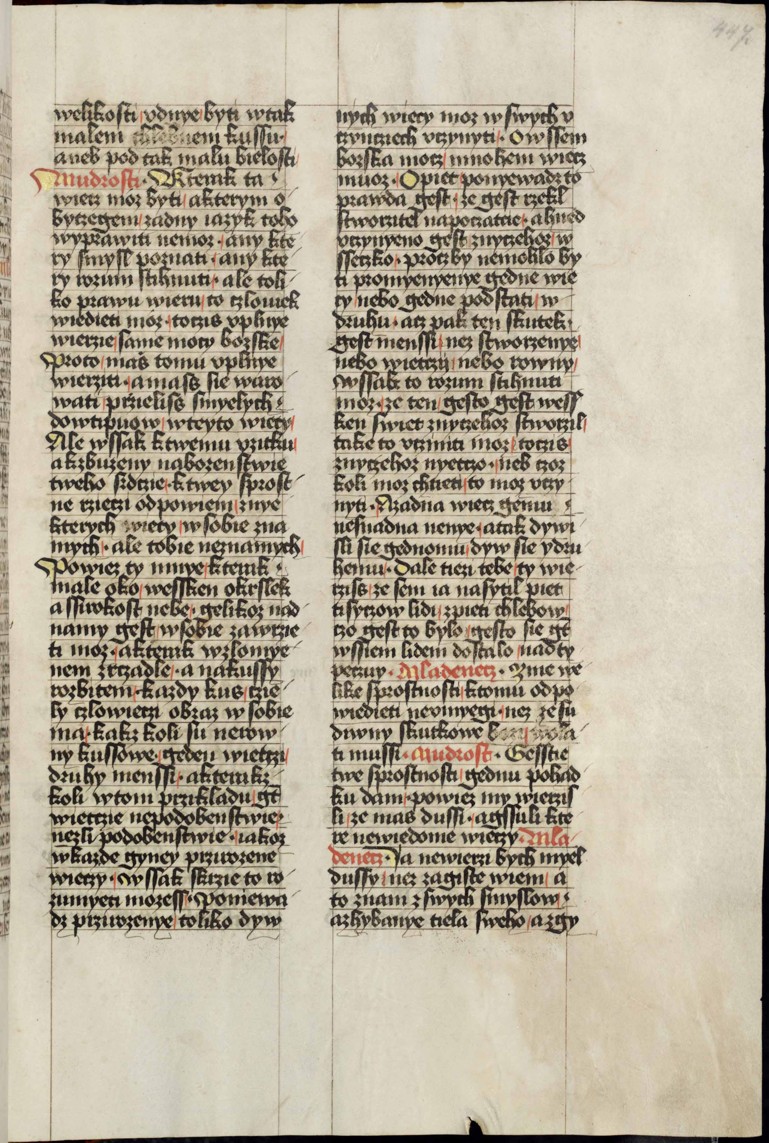 welikosti vdnye byti wtak
malem chlebnem kussu·
aneb pod tak malu bielosti
Mudrost· Kterak ta
wiecz moz byti akterym o
byczegem zadny iazyk toho
wyprawiti nemoz· any kte
ry smysl poznati· any kte
ry rozum stihnuti· ale toli
ko prawu wieru to czlowiek
wiedieti moz· toczis vplnye
wierzie same moty bozske
Proto mas tomu vplnye
wierziti· amass sie waro
wati przieliss smyelych
dowtipuow wteyto wiecy
Ale wssak ktwemu vzitku
akzbuzeny nabozenstwie
tweho sidcie· ktwey sprost
ne rzieczi odpowiem znye
kterych wiecy wsobie zna
mych· ale tobie neznamych
Powiez ty mnye kterak
male oko wessken okrslek
a ssirokost nebe· gelikoz nad
namy gest wsobie zawrzie
ti moz· akterak wzlomye
nem zrczadle· a nakussy
rozbitem kazdy kus czie
ly czlowieczi obraz wsobie
ma· kakz koli su nerow
ny kussowe· geden wietczi
druhy menssi· akterakz
koli wtom przikladu gt
wietczie nepodobenstwie
nezli podobenstwie· iakoz
wkazde gyney przirozene
wiecy· Wssak skrzie to ro
zumyeti mozess· Poniewa
dz przirozenye toliko dyw
nych wiecy moz wswych v
czynciech vczynyti· Owssem
bozska mocz mnohem wiecz
muoz· Opiet ponyewadz to
prawda gest ze gest rzekl
stworzitel napoczatcie· ahned
vczynyeno gest znyczehoz w
ssetzko· procz by nemohlo by
ti promyenyenye gedne wie
cy nebo gedne podstati w
druhu· acz pak ten skutek
gest menssi nez stworzenye
nebo wietczii nebo rowny
Wssak to rozum stihnuti
moz· ze ten gesto gest wess
ken swiet znyczehoz stworzil
take to vcziniti moz· toczis
znyczehoz nyeczo· neb czoz
koli moz chtieti to moz vczy
nyti· Azadna wiecz gemu
nesnadna nenye· atak dywi
sli sie gednomu dyw sie ydru
hemu· Dale tiezi tebe ty wie
rziss ze sem ia nasytil piet
tisyczow lidi zpieti chlebow
czo gest to bylo gesto sie gt
wssiem lidem dostalo nad ty
peczny· Mladenecz· Zme we
like sprostnosti ktomu odpo
wiedieti nevmyegi· nez ze su
diwny skutkowe
ti mussi· Mudrost· Gesstie
twe sprostnosti gednu pohad
ku dam· powiez my wierzis
li ze mas dussi· agssuli kte
re newidome wieczy· Mla
denecz· Ja newierzi bych myel
dussy nez zagiste wiem a
to znam zswych smyslow
azhybanye tiela sweho azgy